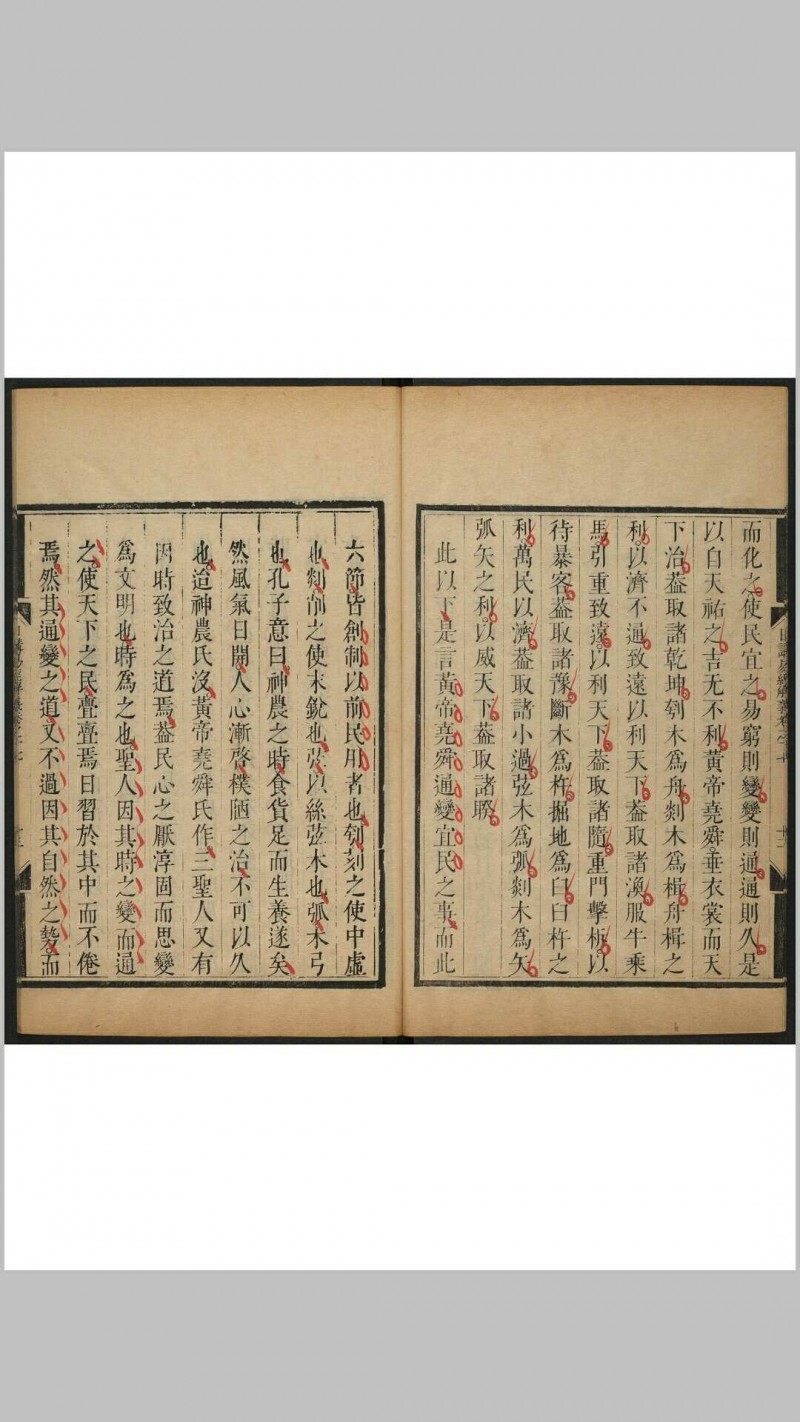 而化之使民宜之易窮則變變則通通則久是
以自天祐之吉无不利黃帝堯舜垂衣裳而天
下治葢取諸乾坤刳木爲舟剡木爲楫舟楫之
利以濟不通致遠以利天下葢取諸渙服牛乘
馬引重致遠以利天下葢取諸隨重門擊柝以
待暴客葢取諸豫斷木爲杵掘地爲臼臼杵之
利萬民以濟葢取諸小過弦木爲弧剡木爲矢
弧矢之利以威天下葢取諸睽
此以下是言黃帝堯舜通變宜民之事而此
六節皆創制以前民用者也刳刻之使中虛
也剡削之使末銳也弦以絲弦木也弧木弓
也孔子意曰神農之時食貨足而生養遂矣
然風氣日開人心漸啓樸陋之治不可以久
也迨神農氏沒黃帝堯舜氏作三聖人又有
因時致治之道焉葢民心之厭淳固而思變
爲文明也時爲之也聖人因其時之變而通
之使天下之民亹亹焉日習於其中而不倦
焉然其通變之道又不過因其自然之勢而
日講易經解義卷之十七